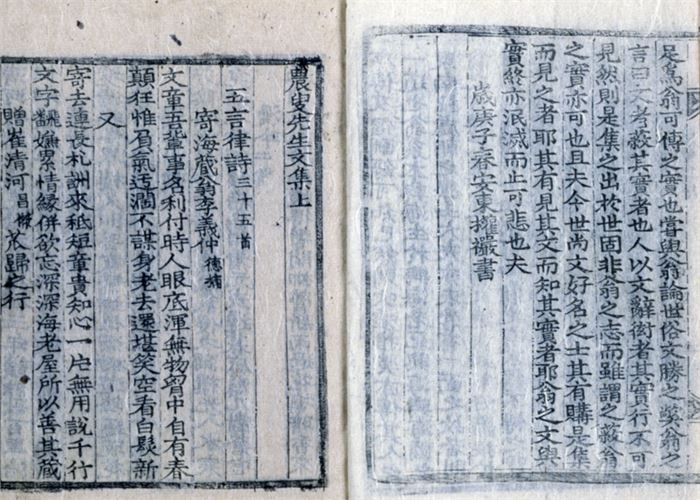 足爲翁可傳之實也嘗與翁論世俗文勝之弊翁之
言曰文者蔽其實者也人以文辭衒者其實行不可
見然則是集之出於世固非翁之志而雖謂之蔽翁
之實亦可也且夫今世尚文好名之士其有購是集
而見之者耶其有見其文而知其實者耶翁之文與
實終亦泯滅而止可悲也夫
歲庚子春安東權 書
農叟先生文集上
五言律詩三十五首
寄海藏翁李義仲
文章五輩事名利付時人眼底渾無物胷中自有春
顛狂惟負氣迂濶不謀身老去還堪笑空看白髮新
又
寄去連長札訓來秪短章貴知心一片無用說千行
文字 嫌累情緣併欲忘深深海老屋所以善其藏
贈崔淸河昌 歸之行